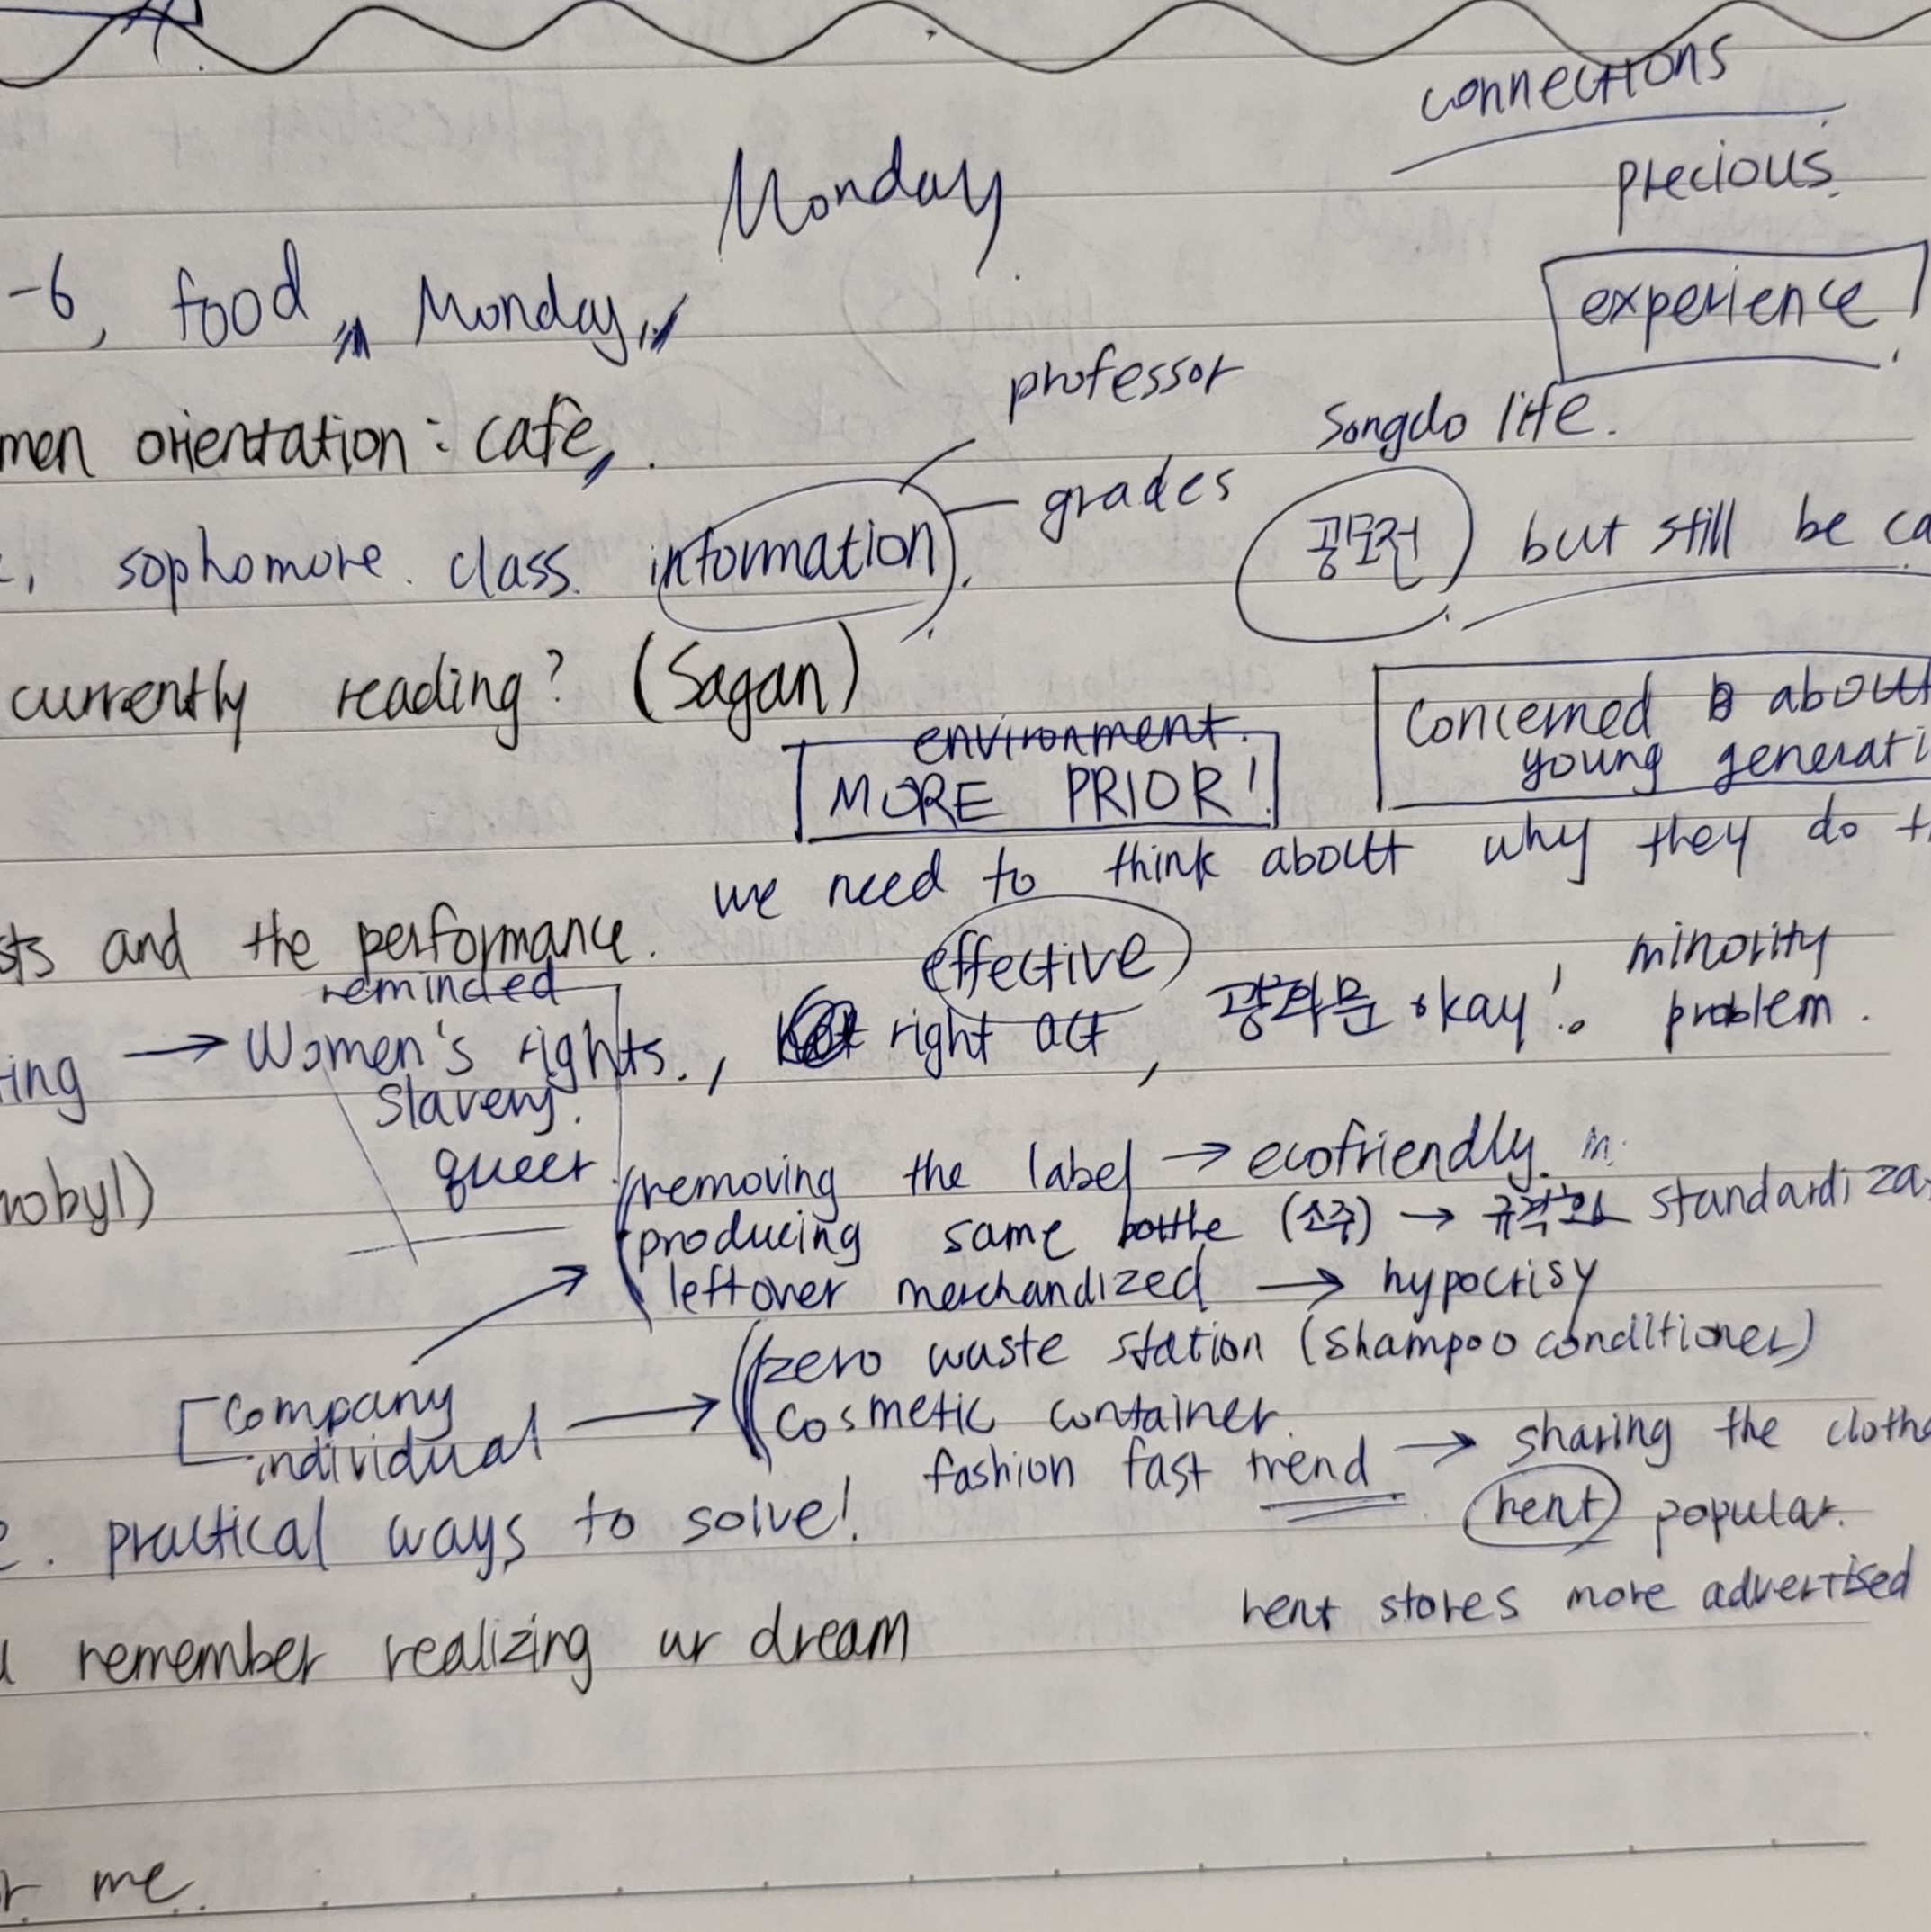 connections
Monday
precious.
-6, food, Monday,
experience!
professor
men orientation: cafe,.
Songdo life.
grades
sophomore. class. information.
공모전 but still be ca
currently reading? (Sagan)
environment.
MORE PRIOR!
Concerned about
young generati
we need to think about why they do th
sts and the performance.
effective
minority
reminded
ing → Women's rights., right act, 광화문 okay! problem.
slavery.
queer
nobyl)
removing the label → ecofriendly.
producing same bottle (소주) → 규격화 standardiza
leftover merchandized → hypocrisy
zero waste station (shampoo conditioner)
company
individual → cosmetic container.
fashion fast trend → sharing the clothe
e. practical ways to solve!
rent popular.
rent stores more advertised
u remember realizing ur dream
r me.